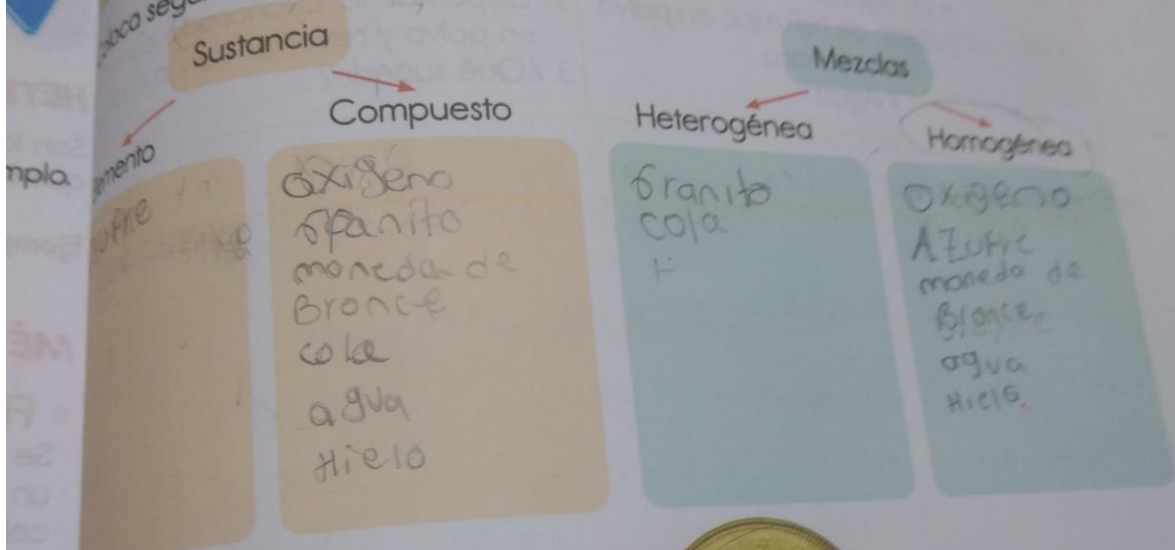 Sustancia
Mezclas
Compuesto
Heterogénea
Homogénea
mpla.
emento
ufre
óxigeno
Granito
moneda de
Bronce
cola
agua
Hielo
Granito
cola
H
Oxigeno
AZufre
moneda de
Bronce
agua
Hielo